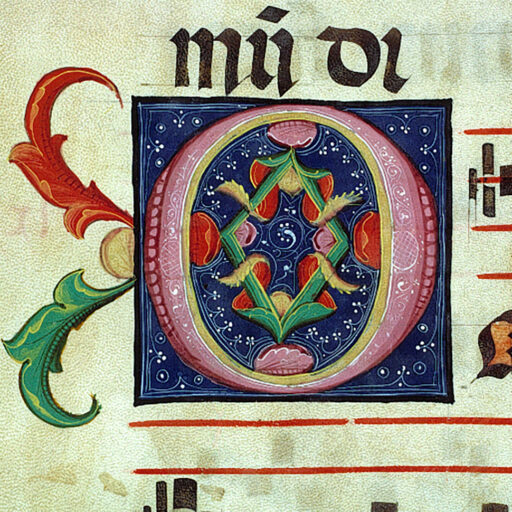 mū di
O